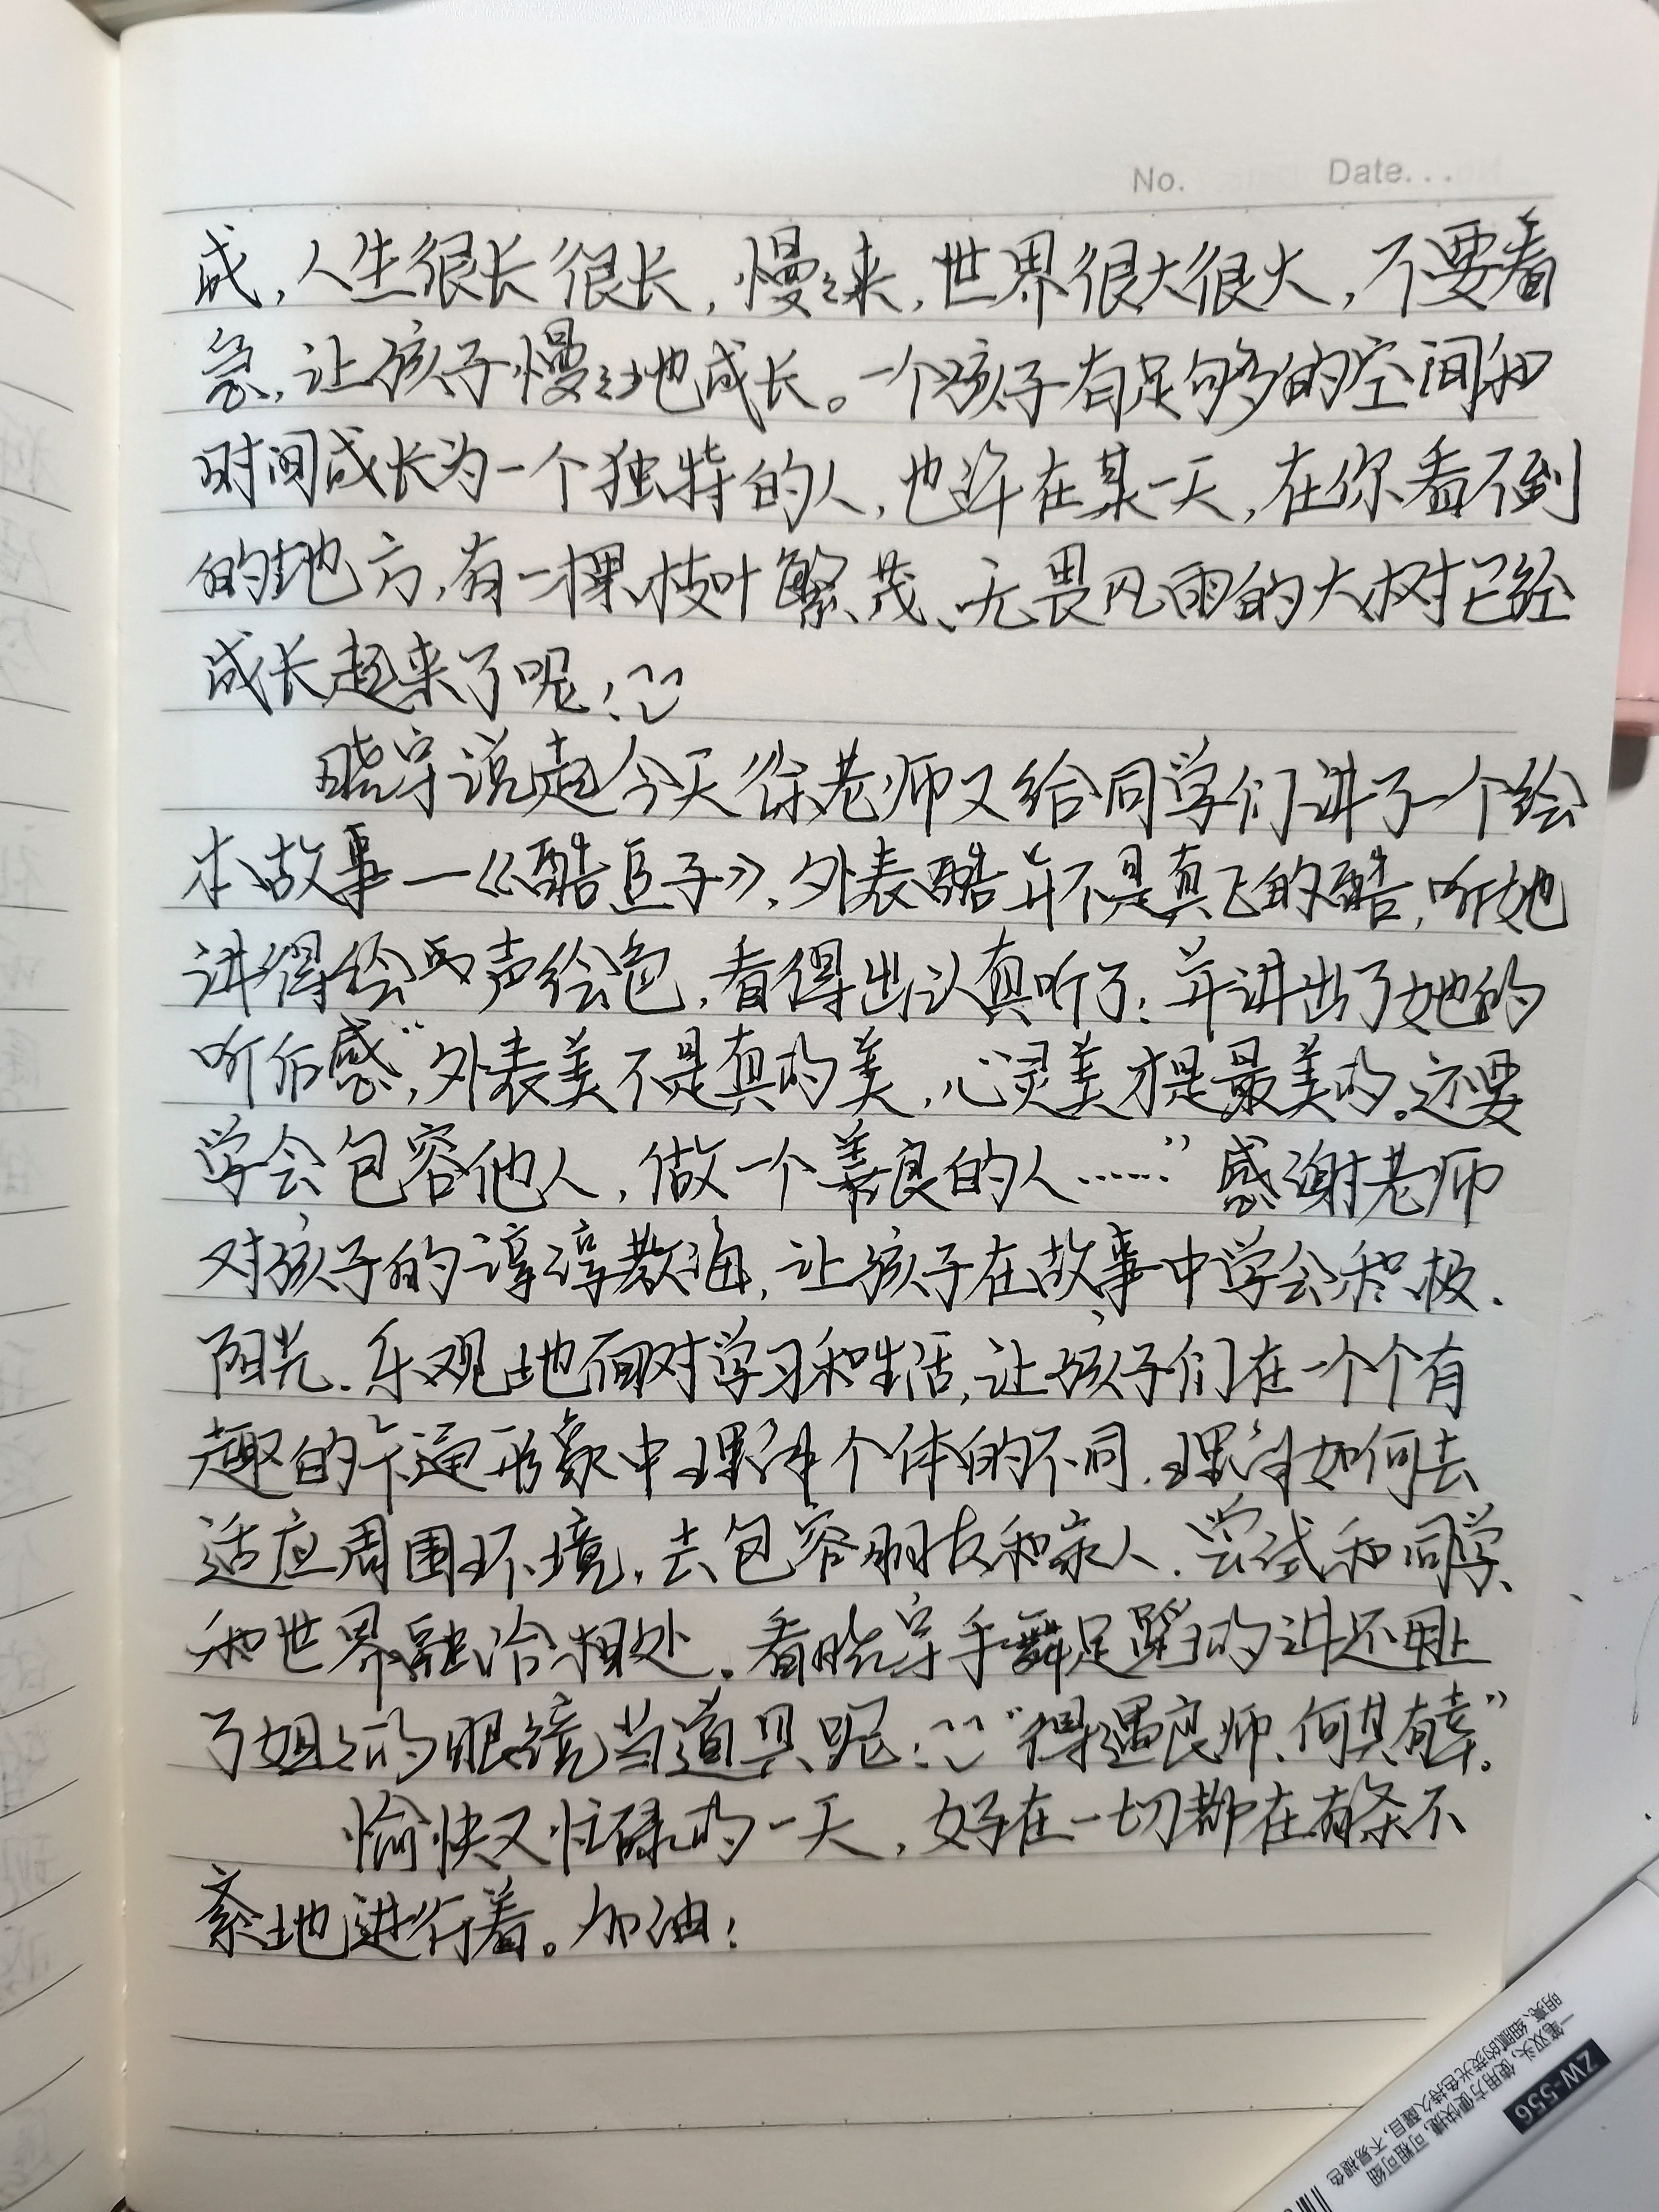 No. Date...
成,人生很长很长,慢々来,世界很大很大,不要着
急,让孩子慢々地成长。一个孩子有足够的空间和
时间成长为一个独特的人,也许在某一天,在你看不到
的地方,有一棵枝叶繁茂、无畏风雨的大树已经
成长起来了呢!
晓宇说起今天徐老师又给同学们讲了一个绘
本故事—《酷豆子》,外表酷并不是真正的酷,听她
讲得绘声绘色,看得出认真听了;并讲出了她的
听后感“,外表美不是真的美,心灵美才是最美的。还要
学会包容他人,做一个善良的人……” 感谢老师
对孩子的谆谆教诲,让孩子在故事中学会积极、
阳光、乐观地面对学习和生活,让孩子们在一个个有
趣的卡通形象中理解个体的不同,理解如何去
适应周围环境,去包容朋友和家人,尝试和同学、
和世界融洽相处。看晓宇手舞足蹈的讲还用上
了姐々的眼镜当道具呢!“得遇良师、何其有幸”。
愉快又忙碌的一天,好在一切都在有条不
紊地进行着。加油!
ZW-556
一笔双头,使用方便快捷,可粗可细
明亮、细腻的荧光色持久醒目,不易褪色